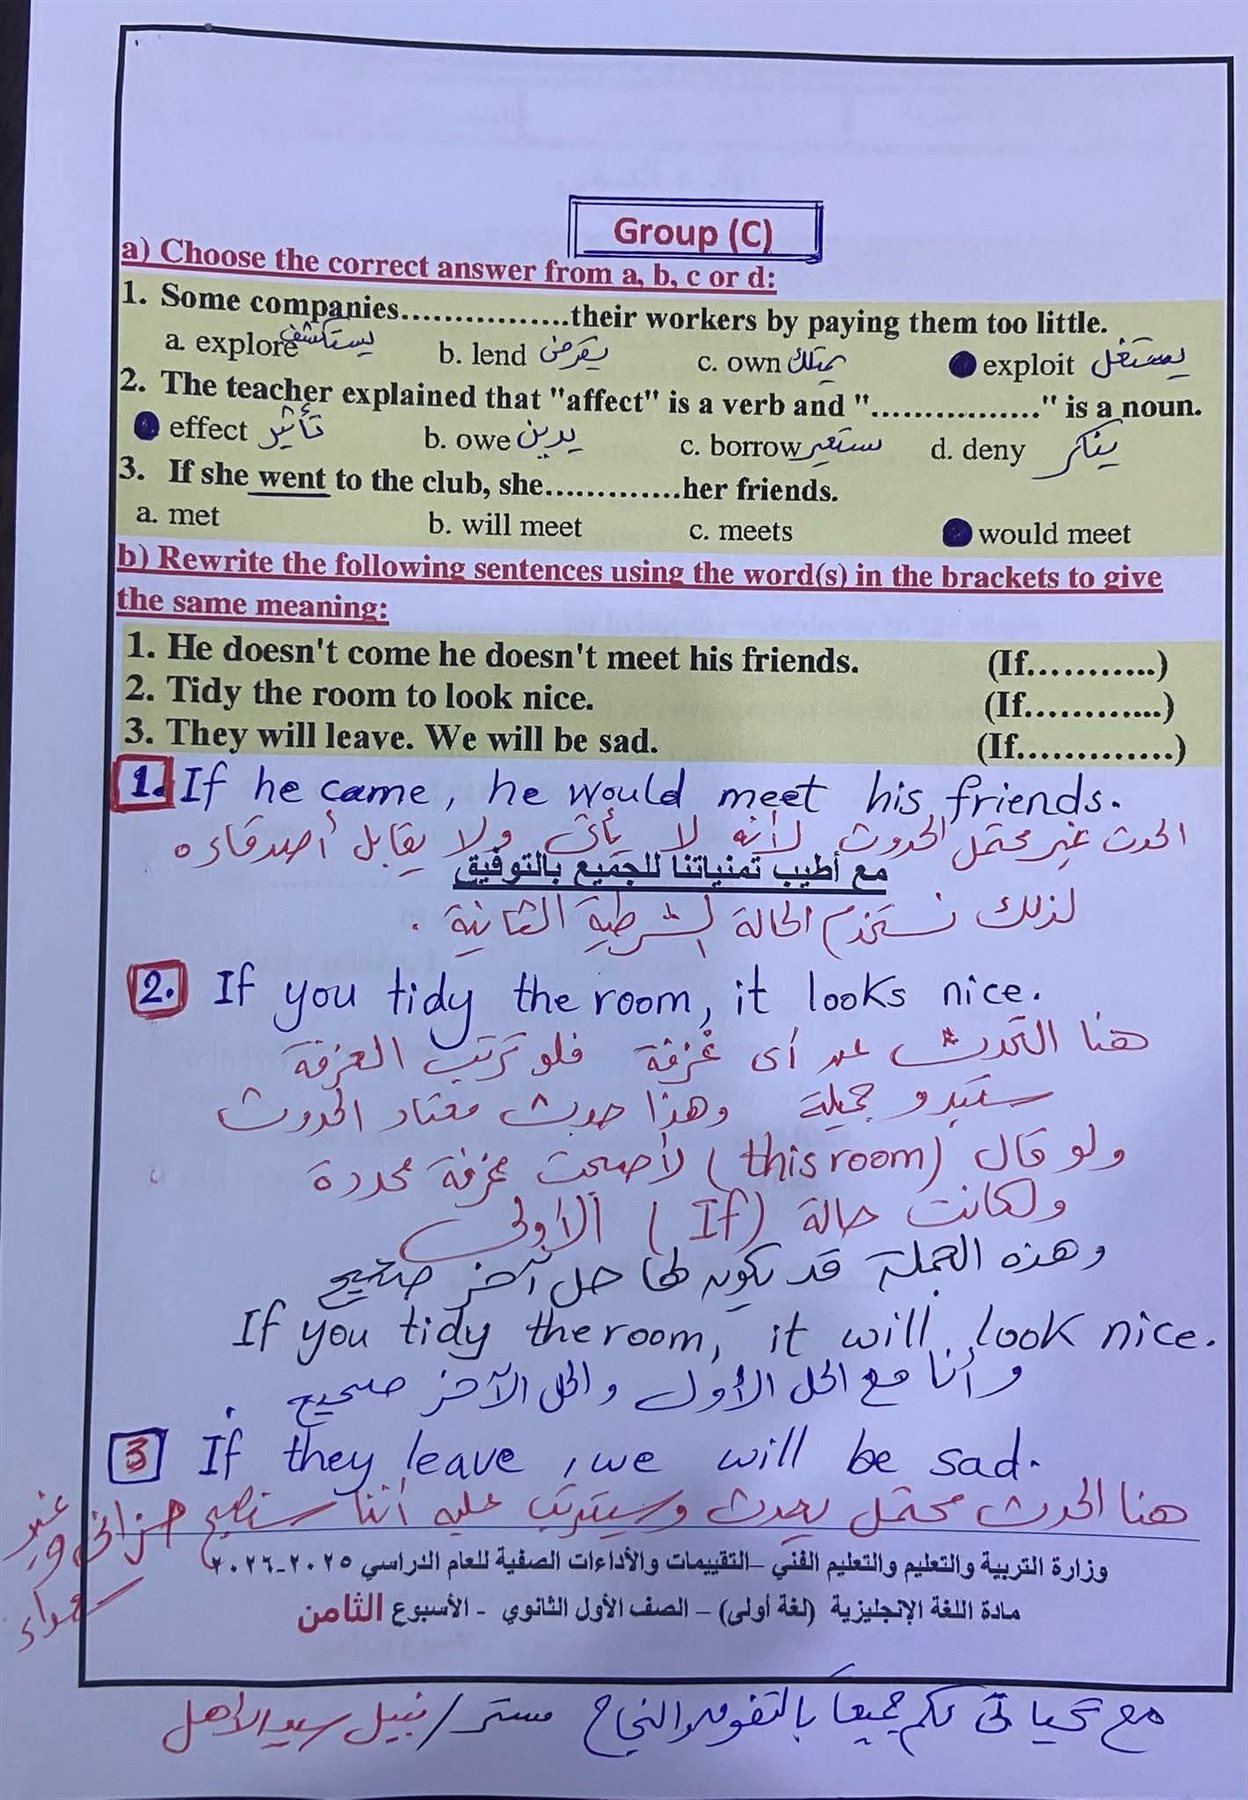 Group (C)
a) Choose the correct answer from a, b, c or d:
1. Some companies................their workers by paying them too little.
a. explore يستكشف b. lend يقرض c. own يمتلك exploit يستغل
2. The teacher explained that "affect" is a verb and "................" is a noun.
effect تأثير b. owe يدين c. borrow يستعير d. deny ينكر
3. If she went to the club, she.............her friends.
a. met b. will meet c. meets would meet
b) Rewrite the following sentences using the word(s) in the brackets to give
the same meaning:
1. He doesn't come he doesn't meet his friends. (If...........)
2. Tidy the room to look nice. (If............)
3. They will leave. We will be sad. (If.............)
1. If he came, he would meet his friends.
الحدث غير محتمل الحدوث لأنه لا يأتى ولا يقابل أصدقاءه
مع أطيب تمنياتنا للجميع بالتوفيق
لذلك نستخدم الحالة الشرطية الثانية .
2. If you tidy the room, it looks nice.
هنا التحدث عن أى غرفة فلو ترتب الغرفة
ستبدو جميلة وهذا حدث معتاد الحدوث
ولو قال (this room) لأصبحت غرفة محددة
ولكانت حالة (If) الأولى
وهذه الجملة قد يكون لها حل آخر صحيح
If you tidy the room, it will look nice.
وأنا مع الحل الأول والحل الآخر صحيح .
3 If they leave, we will be sad.
هنا الحدث محتمل يحدث وسيترتب عليه أننا سنصبح حزانى وغير
سعداء
وزارة التربية والتعليم والتعليم الفني –التقييمات والأداءات الصفية للعام الدراسي ٢٠٢٥-٢٠٢٦
مادة اللغة الإنجليزية (لغة أولى) – الصف الأول الثانوي - الأسبوع الثامن
مع تحياتى لكم جميعاً بالتفوق والنجاح مستر / نبيل سيد الأهل